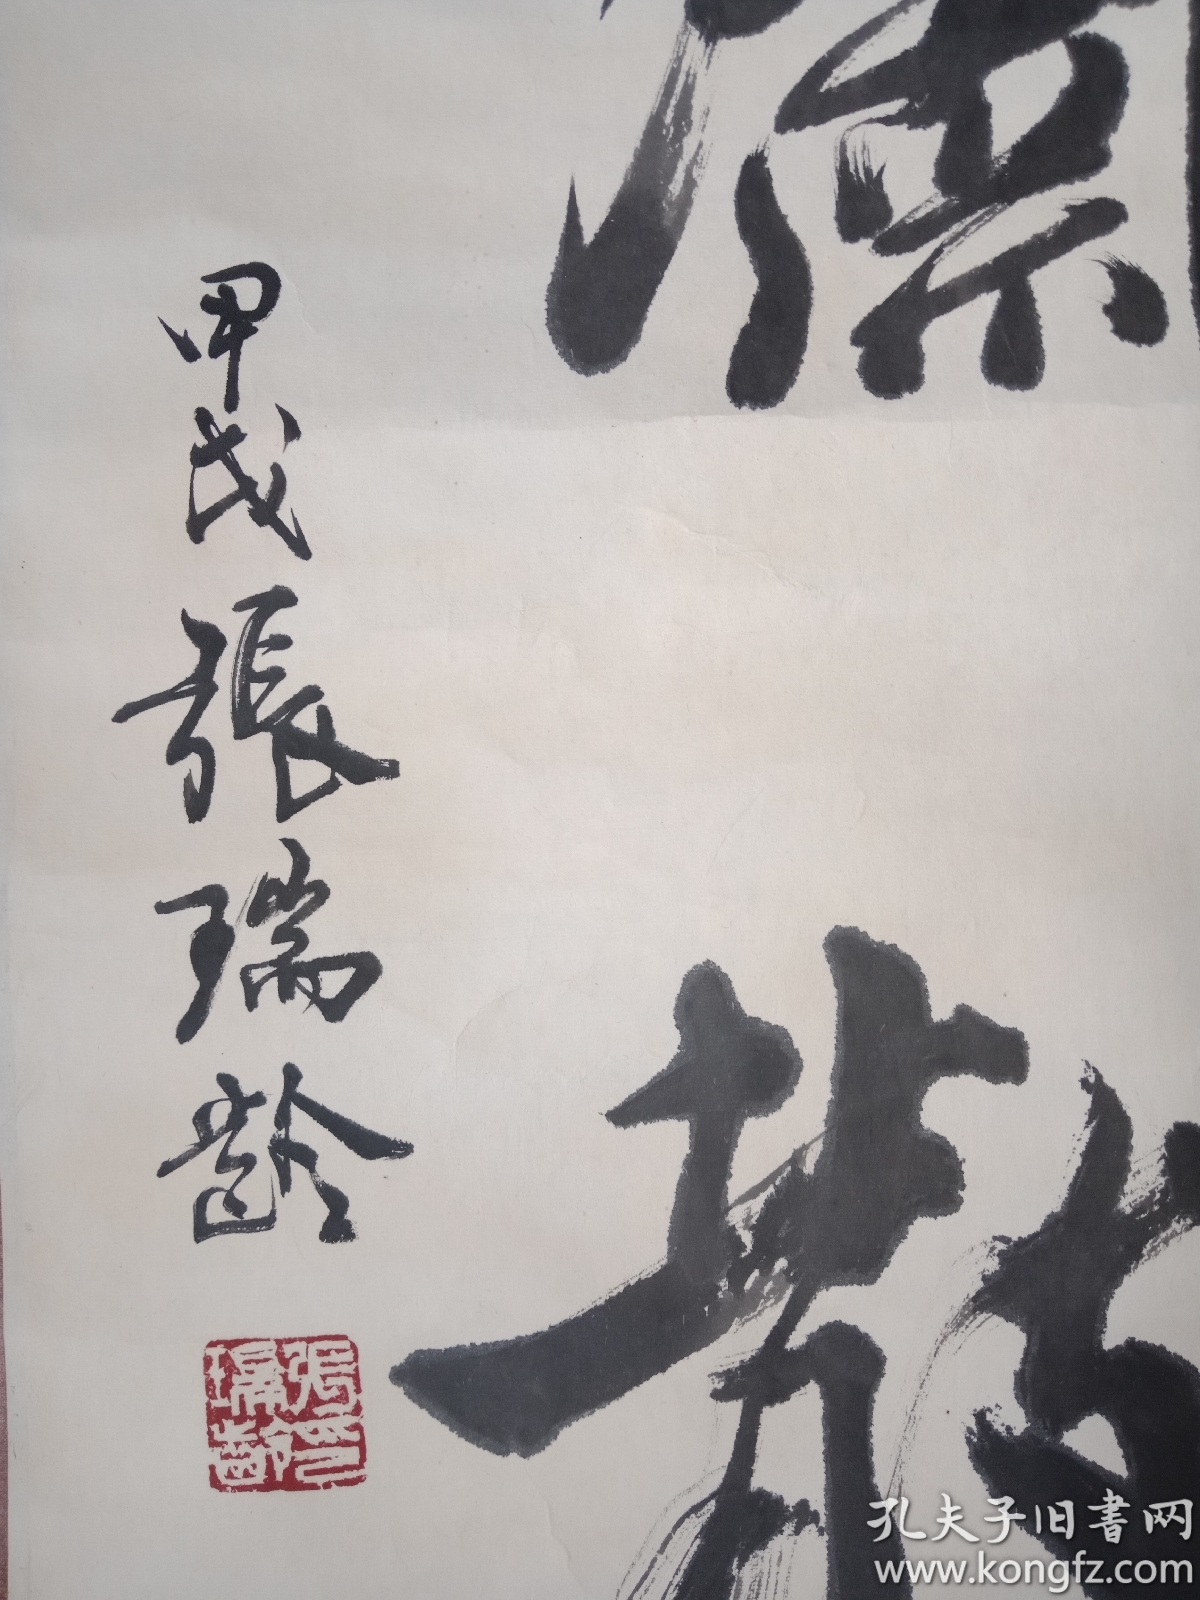 散
甲戌張瑞齡
張瑞齡印
孔夫子旧书网
www.kongfz.com